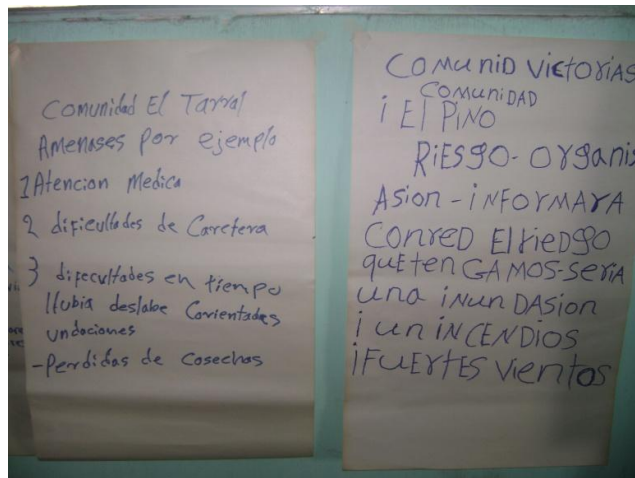 Comunidad El Tarral
Amenases por ejemplo
1 Atencion Medica
2 dificultades de Caretera
3 difecultades en tiempo
llubia deslabe Corientades
undaciones
- Perdidas de Cosechas
COMuniD VICTORIAS
COMUNIDAD
i El PiNO
RiESgO - Organis
Asion - iNFORMARA
CONRED El RiedsgO
quE ten GAMOS - SERiA
una iNunDASion
i un iNCENDIOS
i FuERTES VientOS